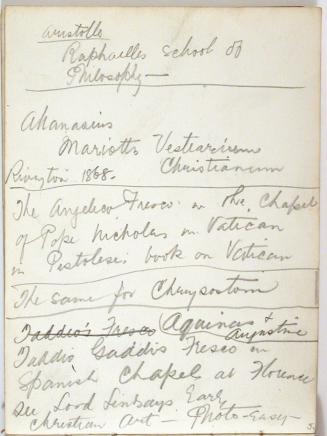 Aristotle
Raphaelles School of
Philosophy—
Athanasius
Mariotts Vestiarium
Christianum
Rivington 1868.
The Angelico Fresco in the Chapel
of Pope Nicholas in Vatican
in Pistolesi book on Vatican
The same for Chrysostom
Taddio's Fresco (Aquinas &
Augustine
Taddio Gaddis Fresco in
Spanish Chapel at Florence
See Lord Lindsays Early
Christian Art — Photo-Easy—